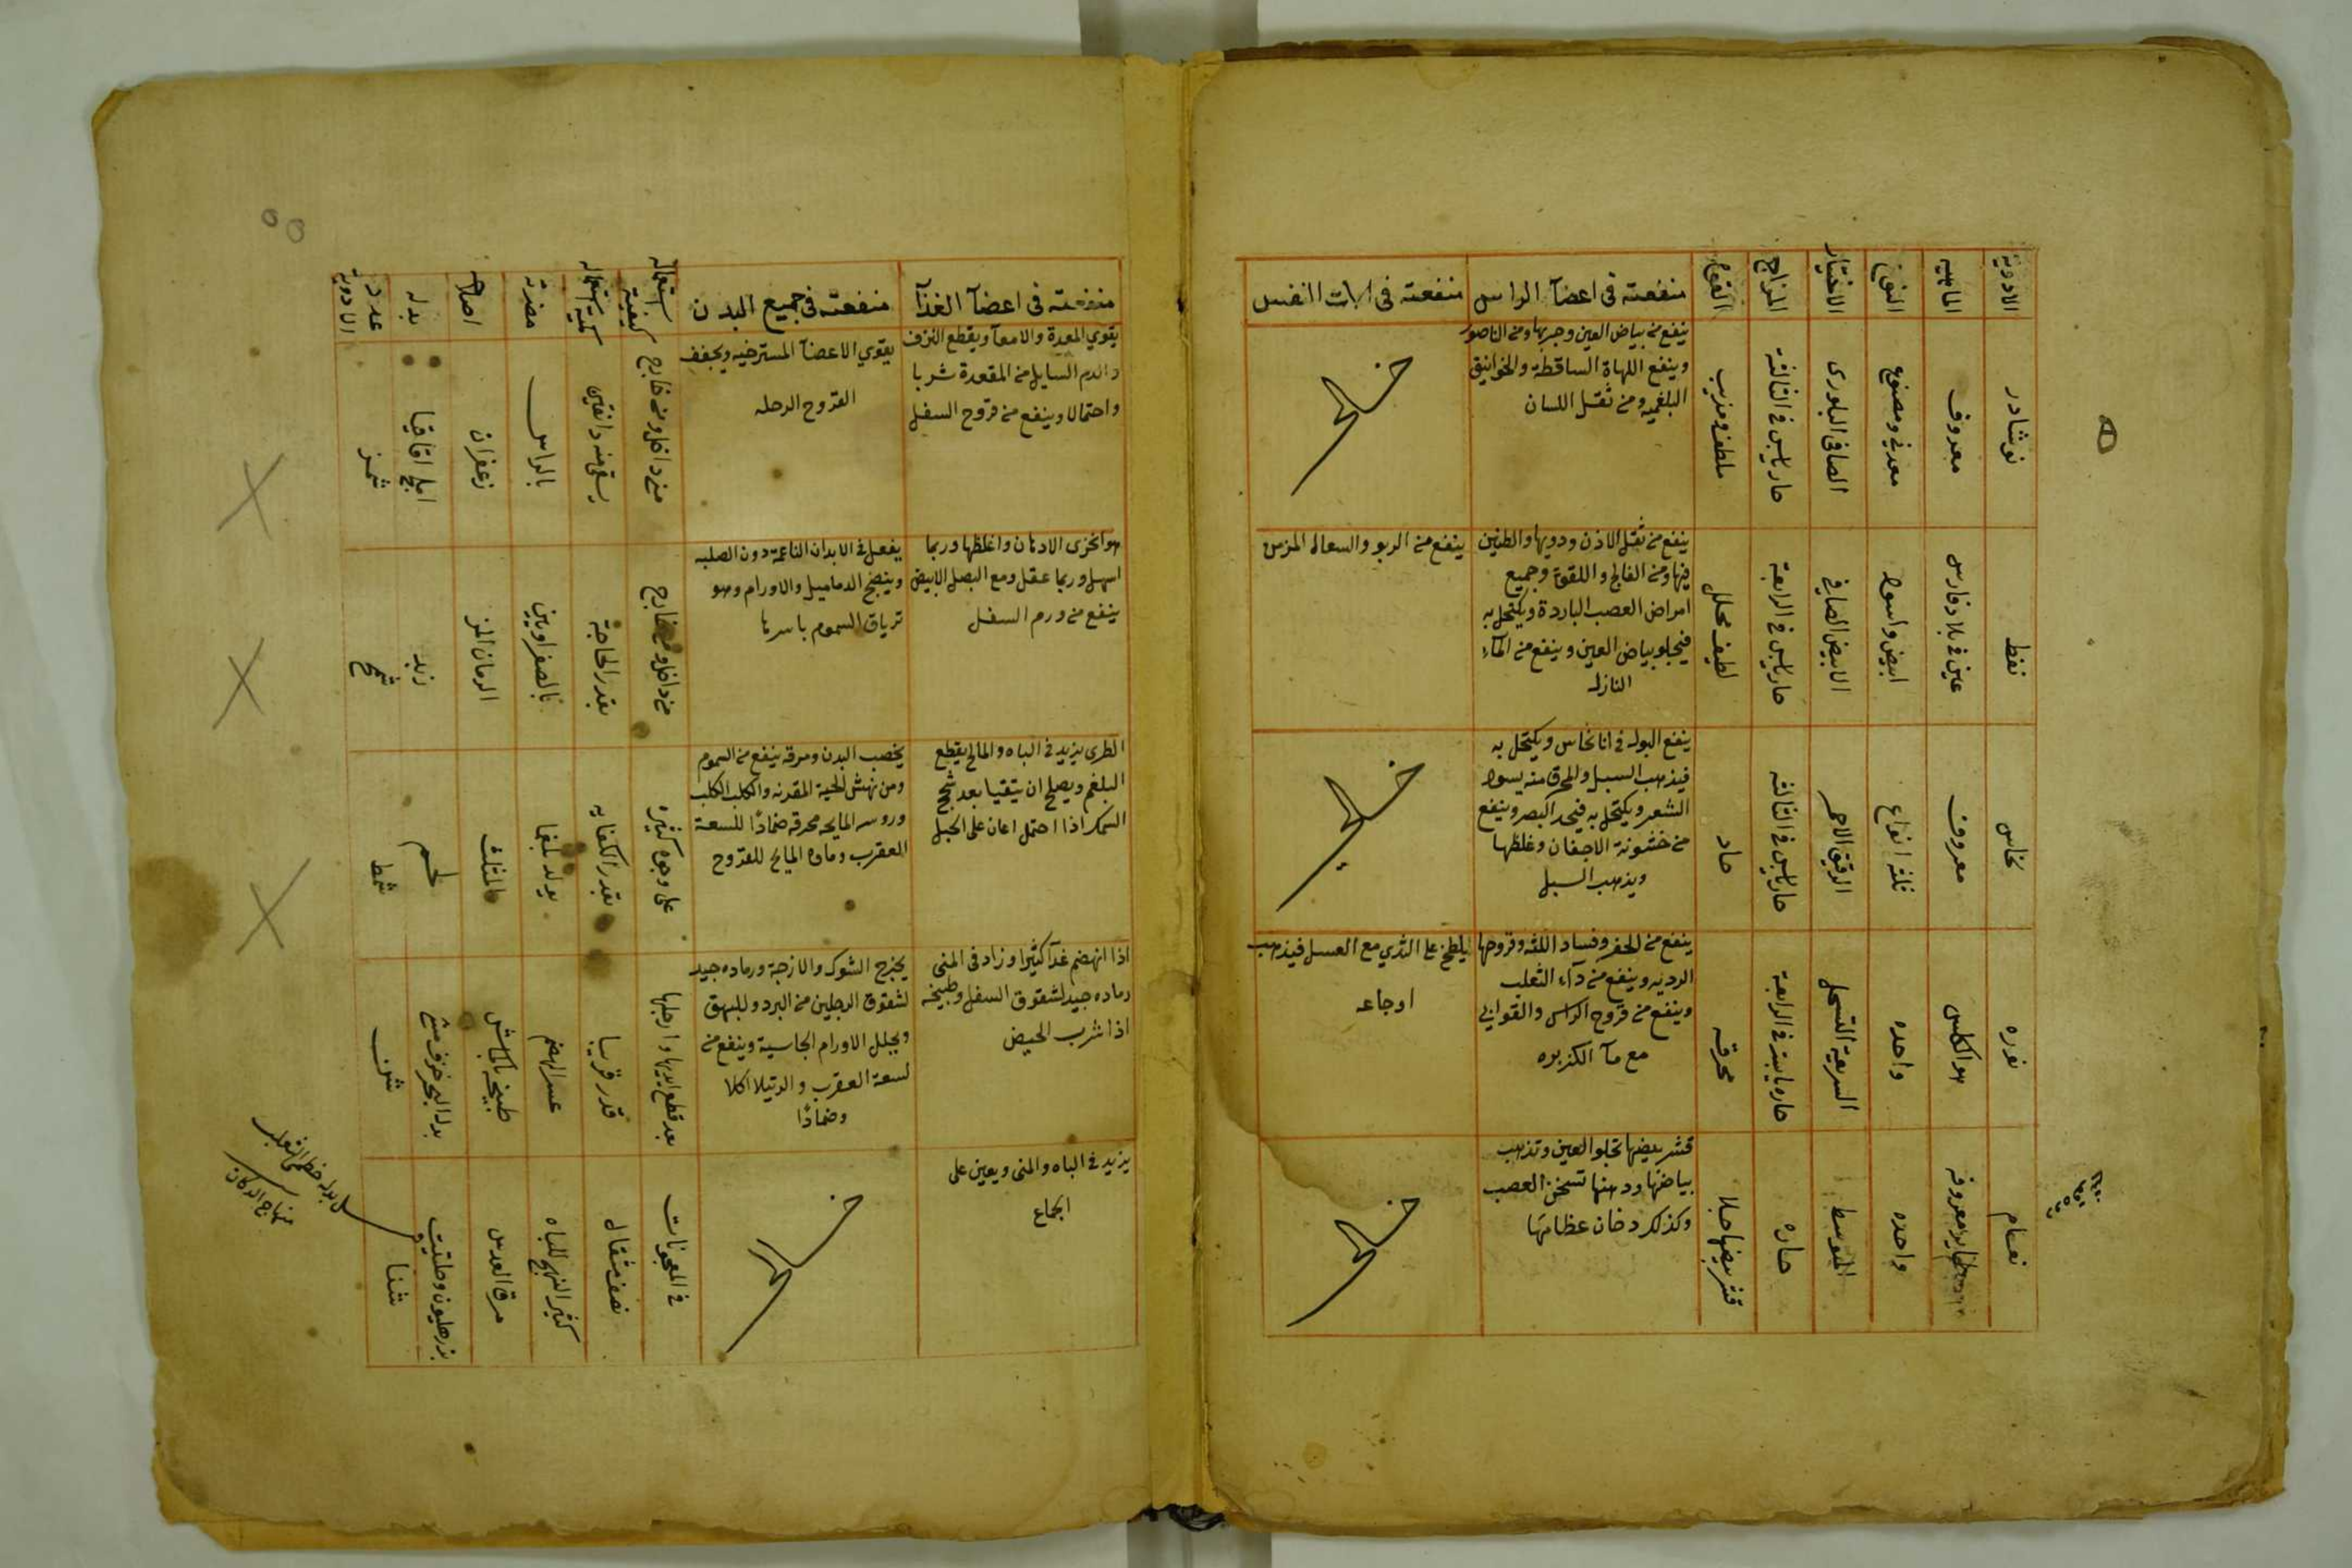 الادوية
الماهيه
النوع
الاختيار
المزاج
القوة
منفعته في اعضآ الراس
منفعته في الات النفس
نوشادر
معروف
معدني ومصنوع
الصافي البلوري
حار يابس في الثالثة
ملطف ومذيب
ينفع من بياض العين وجربها ومن الناصور
وينفع اللهاة الساقطة والخوانيق
البلغميه ومن ثقل اللسان
نفط
عين في بلاد فارس
ابيض واسود
الابيض الصافي
حار يابس في الرابعة
لطيف محلل
ينفع من ثقل الاذن ودويها والطنين
فيها ومن الفالج واللقوة وجميع
امراض العصب الباردة ويكتحل به
فيجلو بياض العين وينفع من المآء
النازل
ينفع من الربو والسعال المزمن
نحاس
معروف
ثلثه انواع
الرقيق الاحمر
حار يابس في الثالثه
حاد
ينفع البول في انا نحاس ويكتحل به
فيذهب السبل والمحرق منه يسود
الشعر ويكتحل به فيحد البصر وينفع
من خشونة الاجفان وغلظها
ويذهب السبل
نوره
هو الكلس
واحده
السريعة التحلل
حاره يابسة في الرابعة
محرقه
ينفع من الحفر وفساد اللثه وقروحها
الرديه وينفع من دآء الثعلب
وينفع من قروح الراس والقوابي
مع مآ الكزبره
يلطخ على الثدي مع العسل فيذهب
اوجاعه
نعام
طاير معروف
واحده
المتوسط
حاره
قشر بيضها جلا
قشر بيضها تجلو العين وتذهب
بياضها ودهنها تسخن العصب
وكذلك دخان عظامها
منفعته في اعضآ الغذآ
منفعته في جميع البدن
كيفية استعماله
كمية استعماله
مضرته
اصلاحه
بدله
عدد الادوية
يقوي المعدة والامعآ ويقطع النزف
والدم السايل من المقعدة شربا
واحتمالا وينفع من قروح السفل
يقوي الاعضآ المسترخيه ويجفف
القروح الرهله
من داخل ومن خارج
يسقى منه دانقين
بالراس
زعفران
اقاقيا
شمز
هو انخزى الادهان واغلظها وربما
اسهل وربما عقل ومع البصل الابيض
ينفع من ورم السفل
يفعل في الابدان الناعمة دون الصلبه
وينضج الدماميل والاورام وهو
ترياق السموم باسرها
من داخل ومن خارج
بقدر الحاجة
بالصفراويين
الرمان المز
زبد
شمح
الطري يزيد في الباه والمالح يقطع
البلغم ويصلح ان يتقيا بعد
السمك اذا احتمل اعان على الحبل
يخصب البدن ومرقه ينفع من السموم
ومن نهش الحية المقرنه والكلب الكلب
وروسه المالحه محرقه ضمادًا للسعة
العقرب وماوه المالح للقروح
على وجوه كثيرة
بقدر الكفايه
يولد بلغما
المثلث
لحم
شمط
اذا انهضم غدآ كثيرا وزاد في المنى
رماده جيد لشقوق السفل وطبيخه
اذا شرب الحيض
يخرج الشوك والازجة ورماده جيد
لشقوق الرجلين من البرد وللبهق
ويحلل الاورام الجاسية وينفع من
لسعة العقرب والرتيلا اكلا
وضمادًا
بعد قطع ايديها وارجلها
قدر قريبا
عسر الهضم
طبيخه بالماش
شمى
يزيد في الباه والمنى ويعين على
الجماع
في المعجونات
نصف مثقال
كثير التهيج للباه
مرق العدس
بزر هليون وحلتيت
شنا
بدله خصى الثعلب
منهاج الدكان